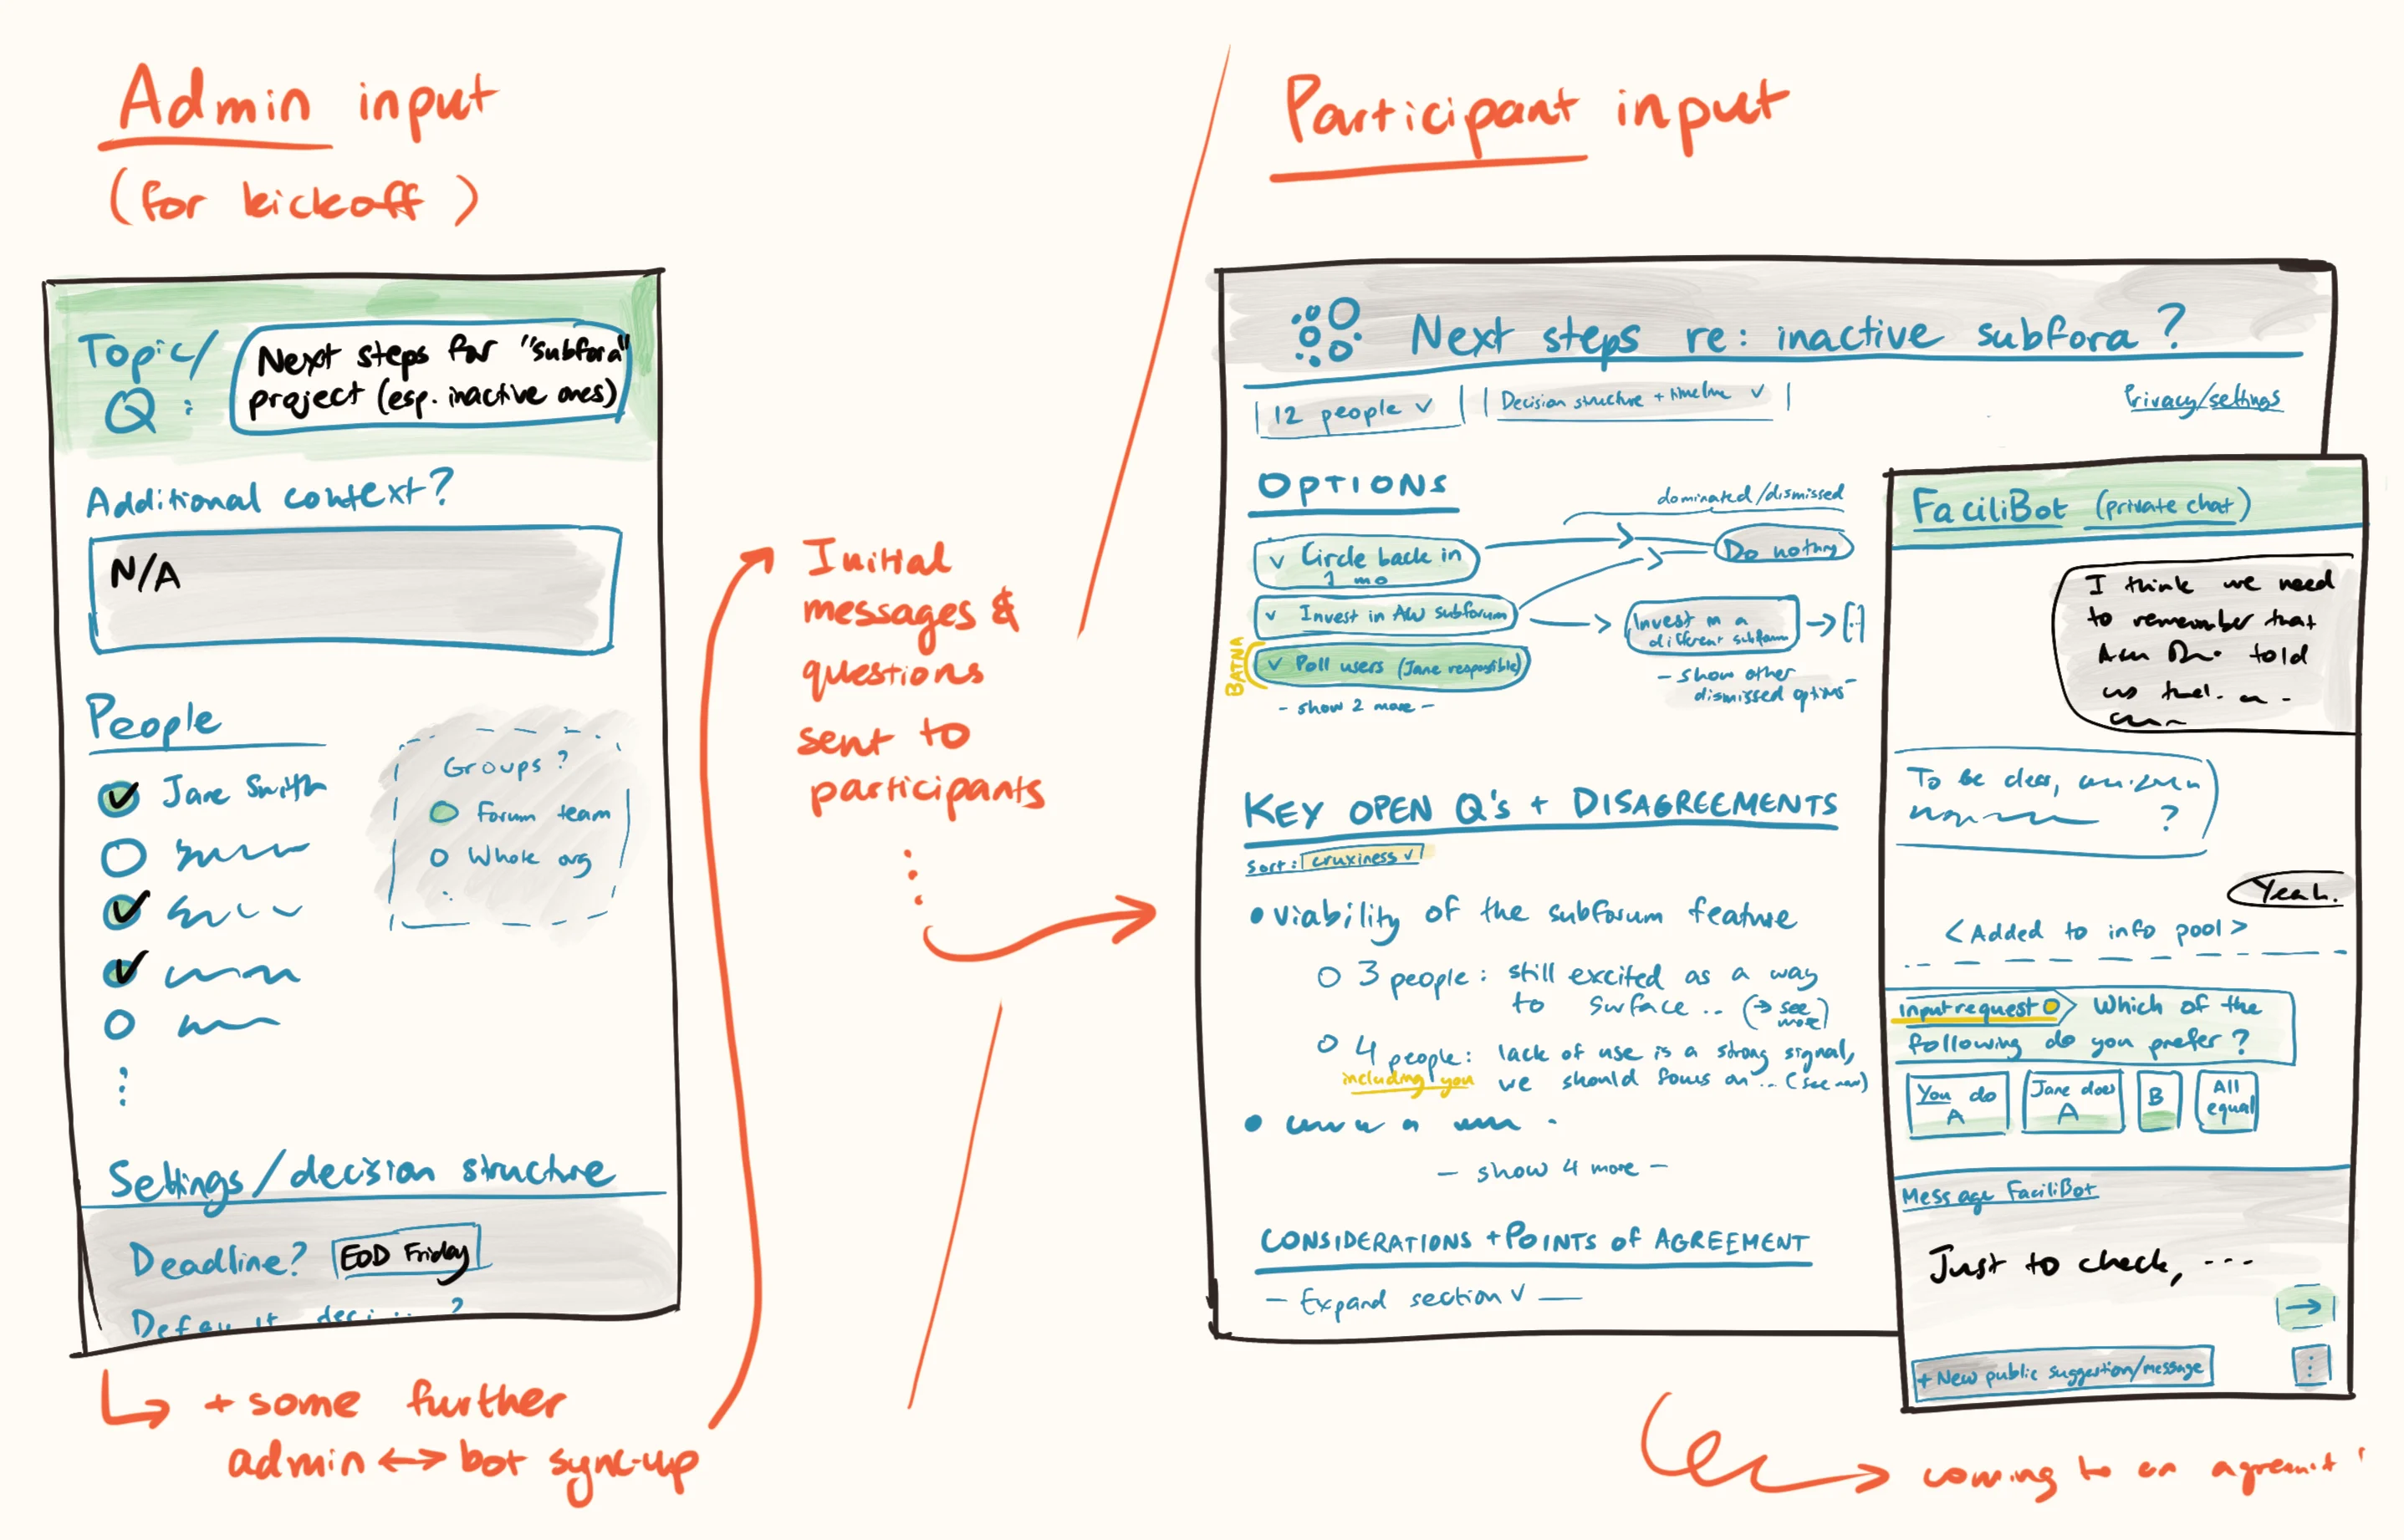 Admin input
(for kickoff)
Topic/
Q:
Next steps for "subfora"
project (esp. inactive ones)
Additional context?
N/A
People
Jane Smith
Groups?
Forum team
Whole org
Settings/decision structure
Deadline? EOD Friday
+ some further
admin ↔ bot sync-up
Initial
messages &
questions
sent to
participants
Participant input
Next steps re: inactive subfora?
12 people ∨
Decision structure + timeline ∨
Privacy/settings
OPTIONS
dominated/dismissed
∨ Circle back in
1 mo
Do nothing
∨ Invest in AW subforum
Invest in a
different subforum
→ [:]
BATNA
∨ Poll users (Jane responsible)
- show 2 more -
- show other
dismissed options -
KEY OPEN Q's + DISAGREEMENTS
Sort: cruxiness ∨
• viability of the subforum feature
3 people: still excited as a way
to surface .. (→ see
more)
4 people: lack of use is a strong signal,
including you we should focus on ... (see
- show 4 more -
CONSIDERATIONS + POINTS of AGREEMENT
- Expand section ∨ -
FaciliBot (private chat)
I think we need
to remember that
told
us
To be clear,
?
Yeah.
<Added to info pool>
input request Which of the
following do you prefer?
You do
A
Jane does
A
B
All
equal
Message FaciliBot
Just to check, ---
→
+ New public suggestion/message
coming to an